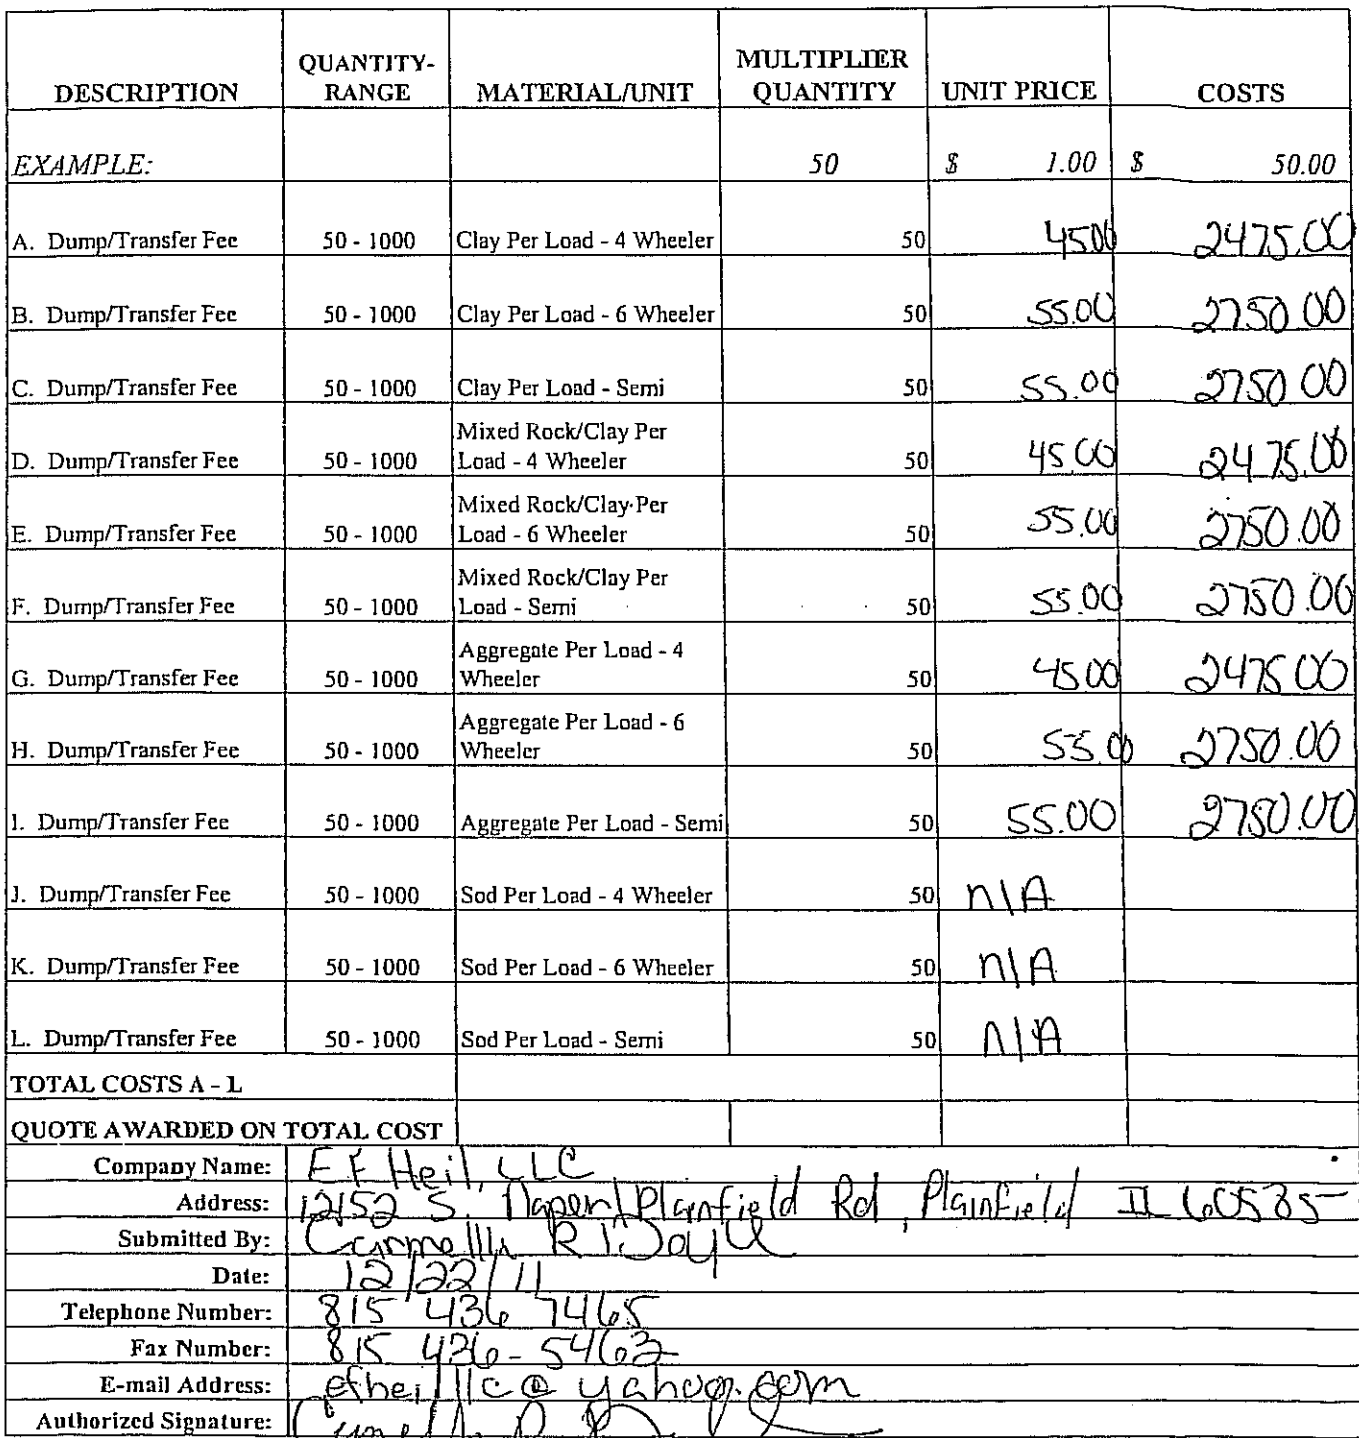 DESCRIPTION QUANTITY-RANGE MATERIAL/UNIT MULTIPLIER QUANTITY UNIT PRICE COSTS
EXAMPLE: 50 $ 1.00 $ 50.00
A. Dump/Transfer Fee 50 - 1000 Clay Per Load - 4 Wheeler 50 45.00 2475.00
B. Dump/Transfer Fee 50 - 1000 Clay Per Load - 6 Wheeler 50 55.00 2750.00
C. Dump/Transfer Fee 50 - 1000 Clay Per Load - Semi 50 55.00 2750.00
D. Dump/Transfer Fee 50 - 1000 Mixed Rock/Clay Per Load - 4 Wheeler 50 45.00 2475.00
E. Dump/Transfer Fee 50 - 1000 Mixed Rock/Clay Per Load - 6 Wheeler 50 55.00 2750.00
F. Dump/Transfer Fee 50 - 1000 Mixed Rock/Clay Per Load - Semi 50 55.00 2750.00
G. Dump/Transfer Fee 50 - 1000 Aggregate Per Load - 4 Wheeler 50 45.00 2475.00
H. Dump/Transfer Fee 50 - 1000 Aggregate Per Load - 6 Wheeler 50 55.00 2750.00
I. Dump/Transfer Fee 50 - 1000 Aggregate Per Load - Semi 50 55.00 2750.00
J. Dump/Transfer Fee 50 - 1000 Sod Per Load - 4 Wheeler 50 n/A
K. Dump/Transfer Fee 50 - 1000 Sod Per Load - 6 Wheeler 50 n/A
L. Dump/Transfer Fee 50 - 1000 Sod Per Load - Semi 50 n/A
TOTAL COSTS A - L
QUOTE AWARDED ON TOTAL COST
Company Name: E F Heil, LLC
Address: 12152 S. Naper/Plainfield Rd, Plainfield Il 60585
Submitted By:
Date: 12/22/11
Telephone Number: 815 436 7465
Fax Number: 815 436-5462
E-mail Address: efheilllc@yahoo.com
Authorized Signature: